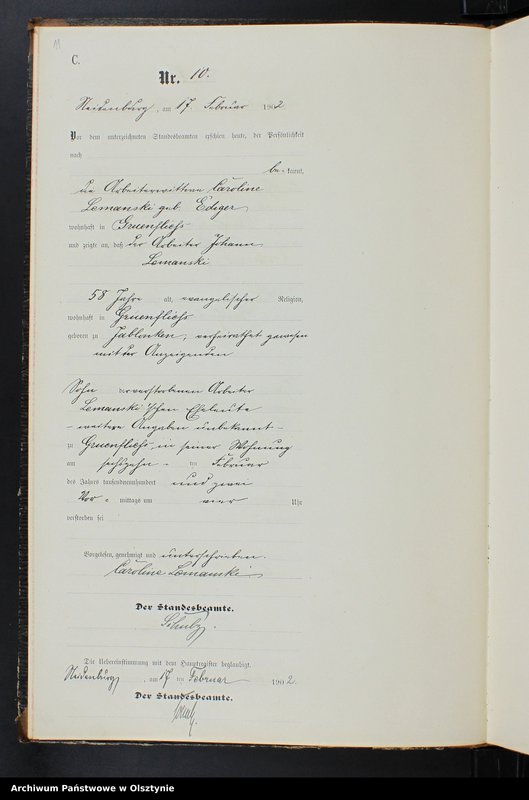 11
C.
Nr. 10.
Neidenburg, am 17. Februar 1902
Vor dem unterzeichneten Standesbeamten erschien heute, der Persönlichkeit
nach
be-kannt,
die Arbeiterwittwe Caroline
Lemanski geb. Ediger
wohnhaft in Gruenfliess
und zeigte an, daß der Arbeiter Johann
Lemanski
58 Jahre alt, evangelischer Religion,
wohnhaft in Gruenfliess
geboren zu Jablonken, verheirathet gewesen
mit der Anzeigenden
Sohn der verstorbenen Arbeiter
Lemanski'schen Eheleute
- weitere Angaben unbekannt -
zu Gruenfliess, in seiner Wohnung
am sechszehn-ten Februar
des Jahres tausendneunhundert und zwei
Vor-mittags um vier Uhr
verstorben sei
Vorgelesen, genehmigt und unterschrieben.
Caroline Lemanski
Der Standesbeamte.
Schulz.
Die Uebereinstimmung mit dem Hauptregister beglaubigt.
Neidenburg, am 17 ten Februar 1902.
Der Standesbeamte.
Archiwum Państwowe w Olsztynie